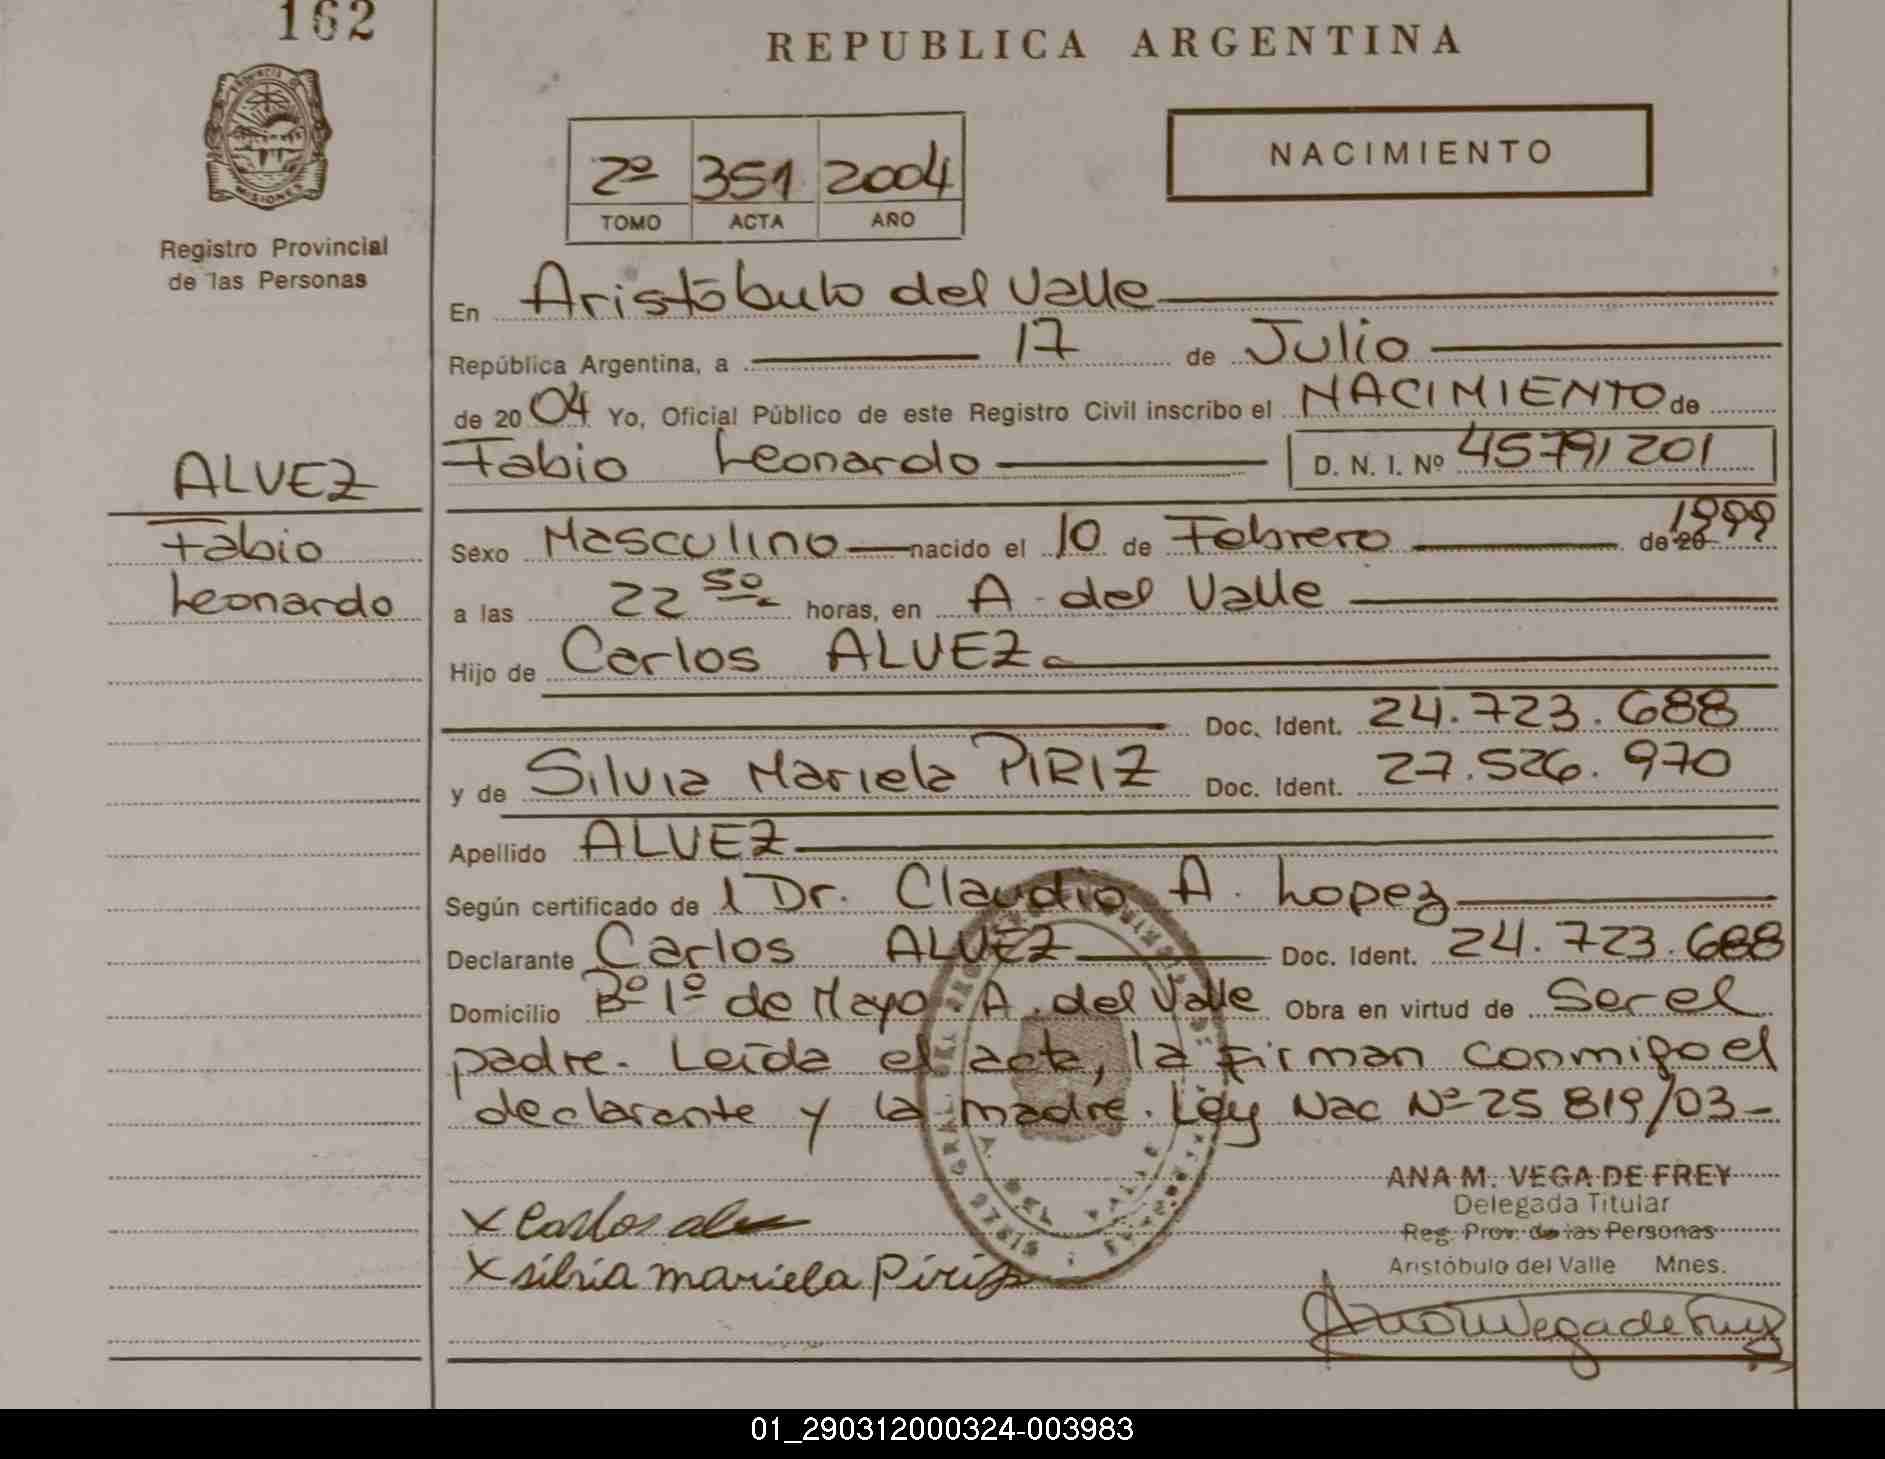 162
REPUBLICA ARGENTINA
PROVINCIA DE
MISIONES
Registro Provincial
de las Personas
2º 351 2004
TOMO ACTA AÑO
NACIMIENTO
En Aristóbulo del Valle
República Argentina, a 17 de Julio
de 2004 Yo, Oficial Público de este Registro Civil inscribo el NACIMIENTO de
Fabio Leonardo D. N. I. Nº 45791201
ALVEZ
Fabio
Leonardo
Sexo Masculino nacido el 10 de Febrero de 20 1999
a las 22 50 horas, en A. del Valle
Hijo de Carlos ALVEZ
Doc. Ident. 24.723.688
y de Silvia Mariela PIRIZ Doc. Ident. 27.526.970
Apellido ALVEZ
Según certificado de l Dr. Claudio A. Lopez
Declarante Carlos ALVEZ Doc. Ident. 24.723.688
Domicilio Bº 1º de Mayo. A. del Valle Obra en virtud de Ser el
padre. Leída el acta, la firman conmigo el
declarante y la madre. Ley Nac Nº 25 819/03-
ANA M. VEGA DE FREY
Delegada Titular
Reg. Prov. de las Personas
Aristóbulo del Valle Mnes.
x Carlos alv
x silvia mariela Piriz
01_290312000324-003983